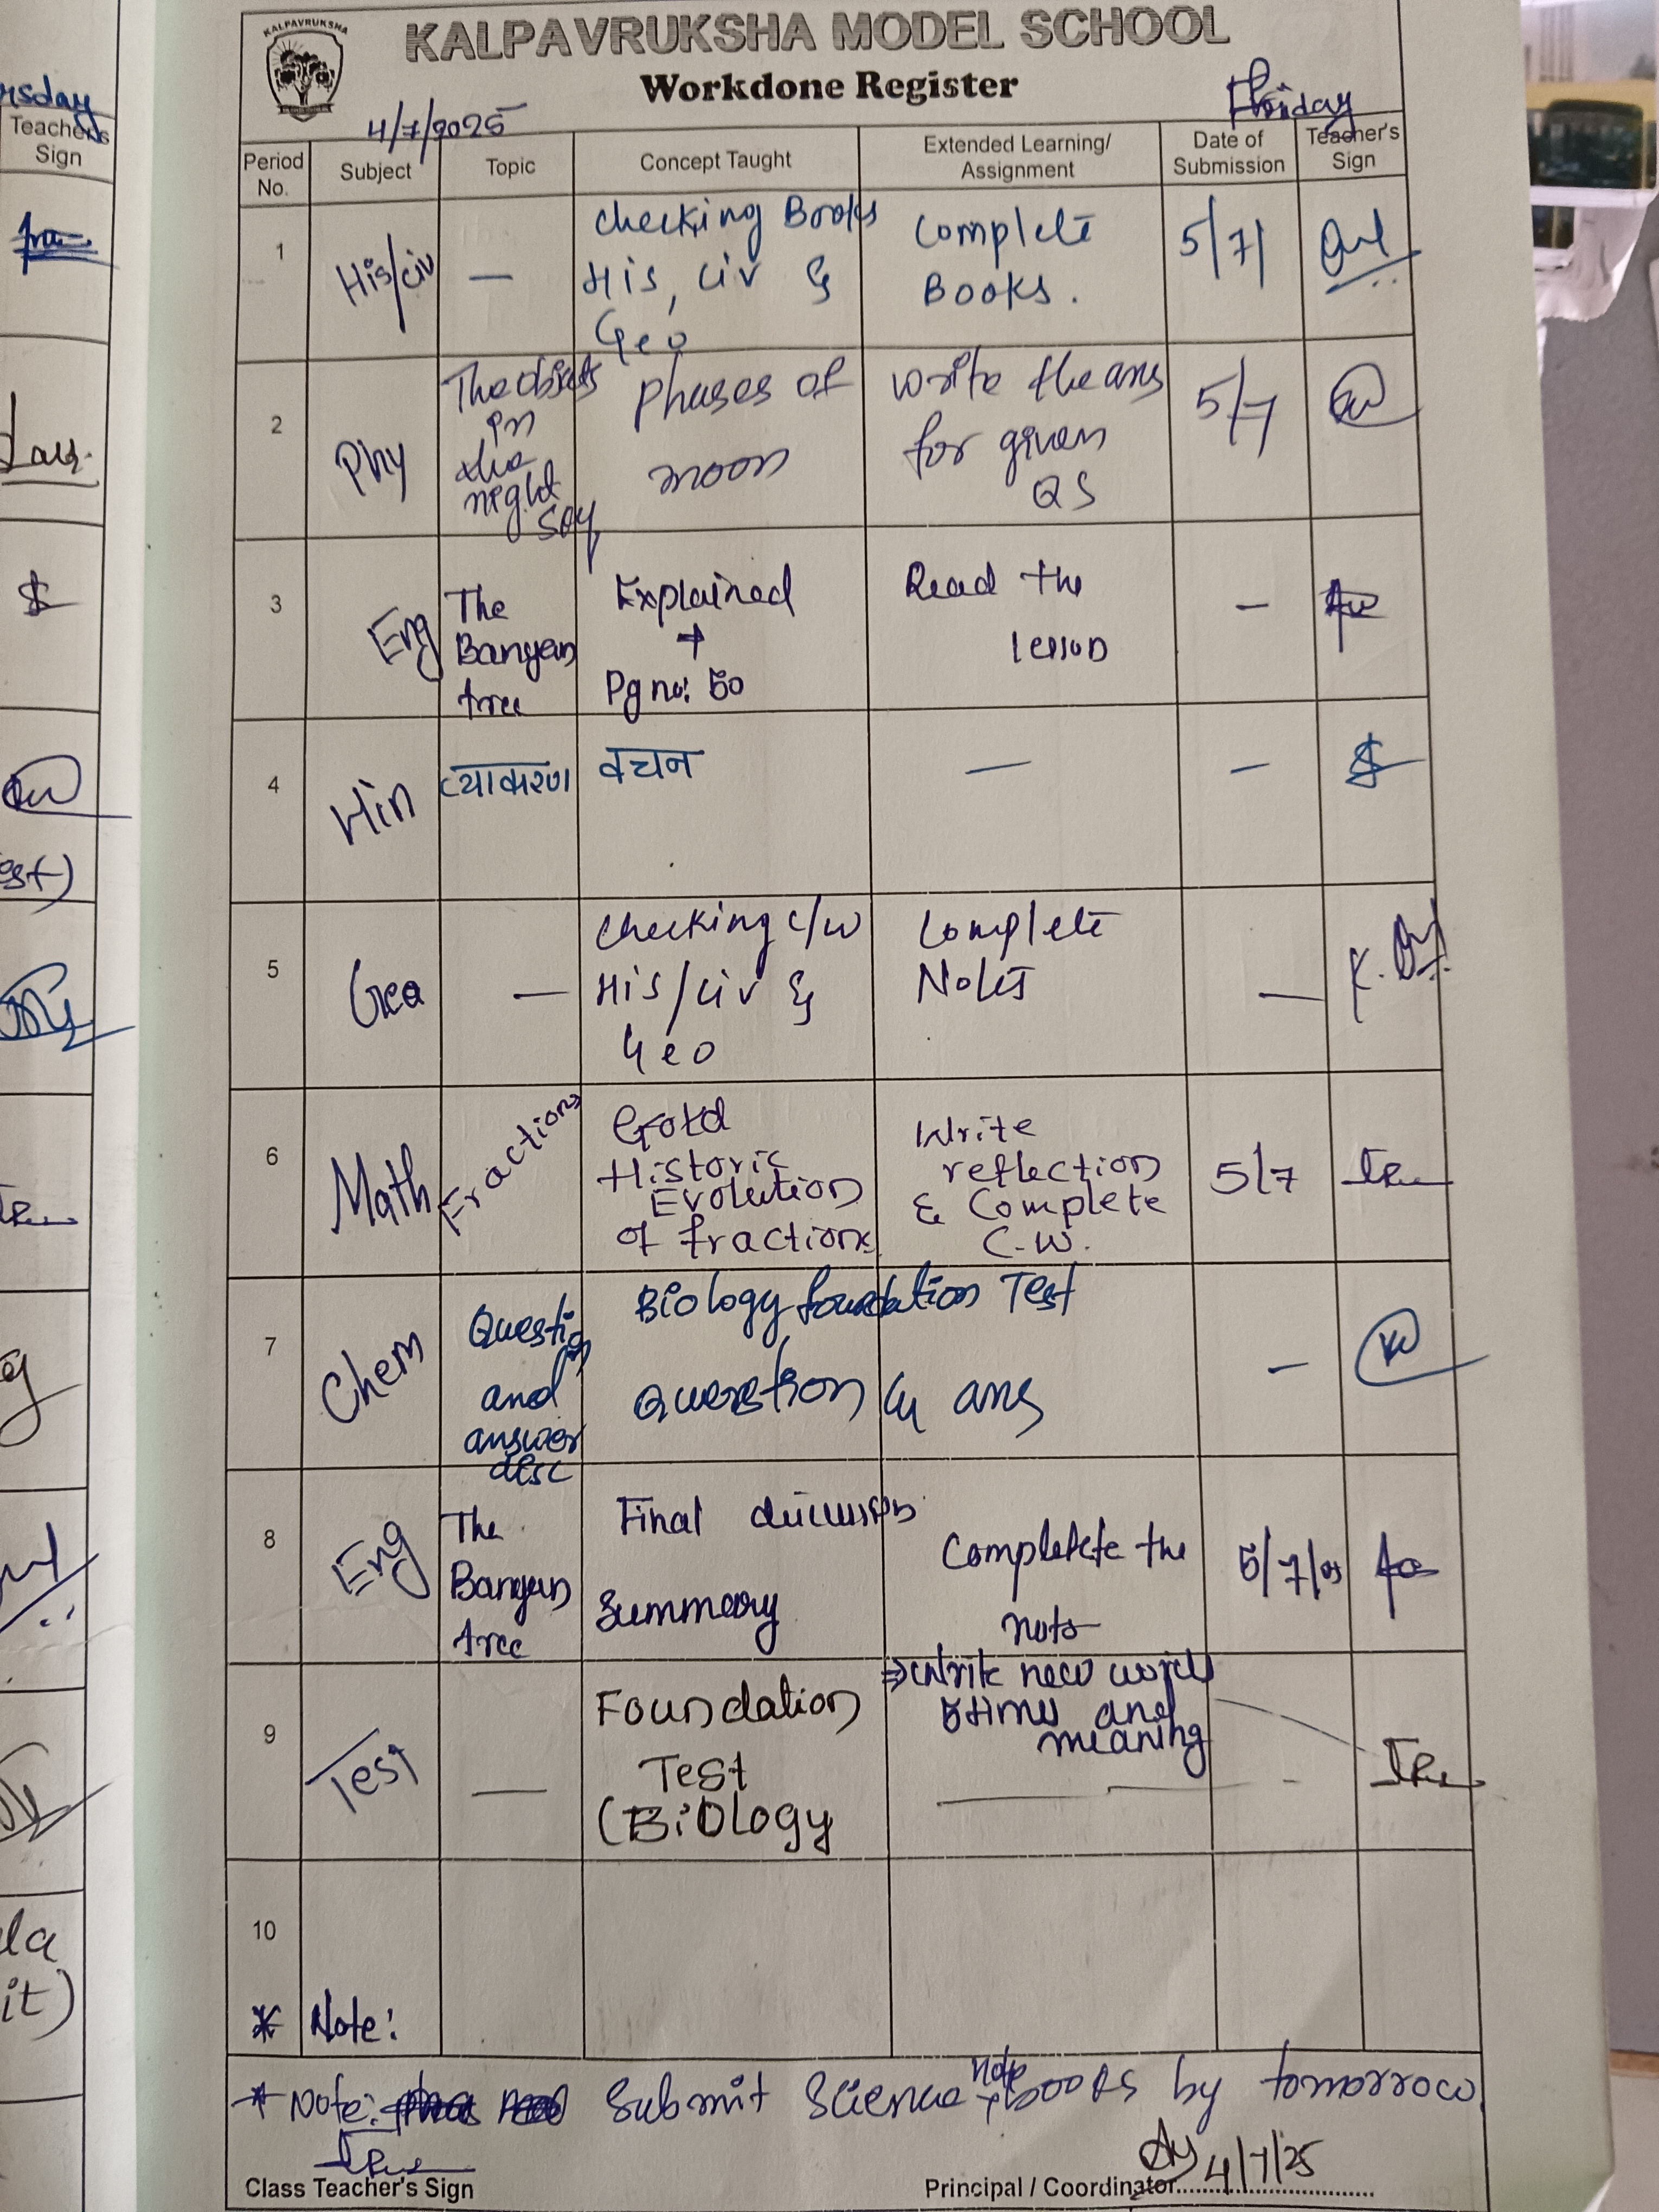 KALPAVRUKSHA
KALPAVRUKSHA MODEL SCHOOL
Workdone Register
4/7/2025
Friday
rsday
Teacher's
Sign
Period
No.
Subject
Topic
Concept Taught
Extended Learning/
Assignment
Date of
Submission
Teacher's
Sign
1
His/civ
—
checking Books
His, civ &
Geo
Complete
Books.
5/7/
2
Phy
The objects
in
the
night
sky
phases of
moon
write the ans
for given
QS
5/7
3
Eng
The
Banyan
tree
Explained
+
Pg no: 50
Read the
lesson
–
4
Hin
व्याकरण
वचन
—
–
5
Geo
—
checking c/w
His/civ &
Geo
Complete
Notes
—
6
Math
Fractions
Gotd
Historic
Evolution
of fractions
Write
reflection
& Complete
C.W.
5/7
7
Chem
Question
and
answer
desc
Biology foundation Test
question & ans
–
8
Eng
The
Banyan
tree
Final discussion
Summary
Completete the
note
5/7/25
⇒ Write new words
5 times and
meaning
9
Test
—
Foundation
Test
(Biology
—
-
10
* Note:
* Note: Submit Science note books by tomorrow
Class Teacher's Sign
4/7/25
Principal / Coordinator
est)
la
it)